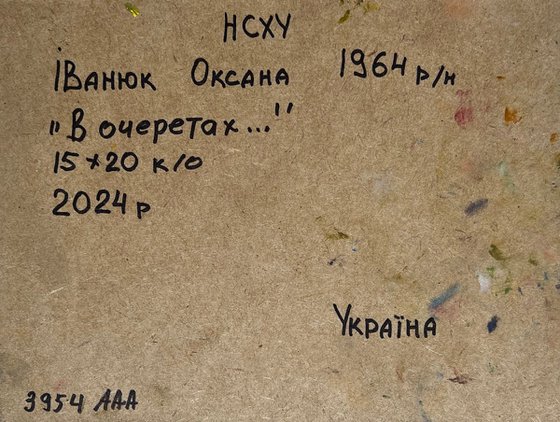 НСХУ
Іванюк Оксана 1964 р/н
"В очеретах..."
15×20 к/о
2024 р
Україна
3954 ААА